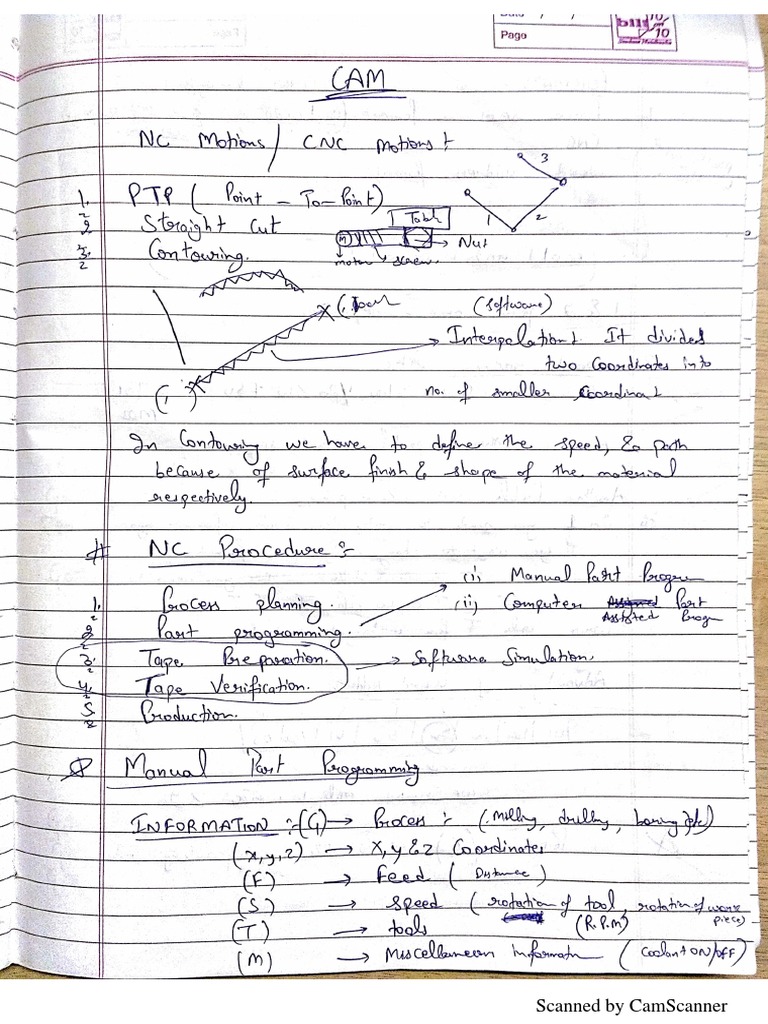 Date / /
Page
CAM
NC Motions / CNC Motions :-
1. PTP ( Point - To - Point )
2 Straight Cut
3. Contouring.
1 2 3
Table
M
Nut
motor screw.
( , )
( , )
(software)
Interpolation : It divides
two coordinates into
no. of smaller coordinat
In Contouring we have to define the speed, & path
because of surface finish & shape of the material
respectively.
# NC Procedure :-
1. Process planning.
2 Part programming.
3. Tape Preparation.
4. Tape Verification.
5 Production.
(i) Manual Part Progrm
(ii) Computer Assigned Part
Assisted Prog
Software Simulation.
Manual Part Programming
INFORMATION :- (G) → Process :- (Milling, drilling, boring etc)
(x, y, z) → x, y & z Coordinates
(F) → Feed ( Distance )
(S) → speed ( rotation of tool, rotation of work piece)
(T) → tools (R.P.M)
(M) → Miscellaneous informatn ( Coolant ON/OFF)
Scanned by CamScanner